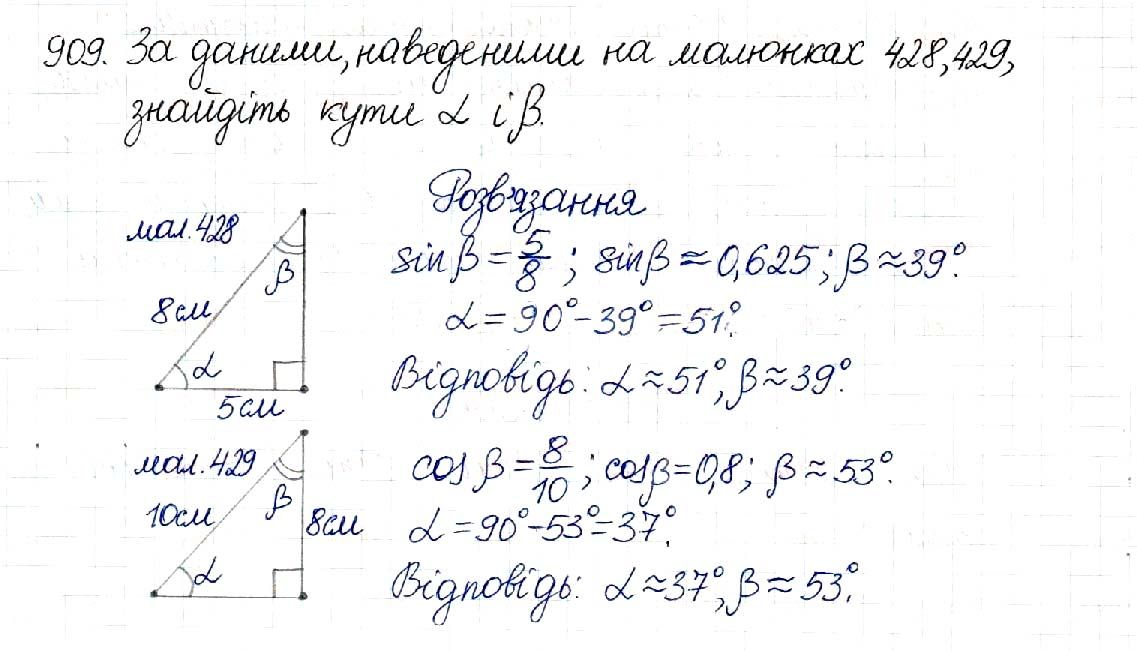 909. За даними, наведеними на малюнках 428, 429,
знайдіть кути α і β.
Розв'язання
мал. 428
β
8см
α
5см
sin β = 5/8 ; sin β ≈ 0,625; β ≈ 39°.
α = 90° - 39° = 51°.
Відповідь: α ≈ 51°, β ≈ 39°.
мал. 429
β
10см
8см
α
cos β = 8/10 ; cos β = 0,8; β ≈ 53°.
α = 90° - 53° = 37°.
Відповідь: α ≈ 37°, β ≈ 53°.